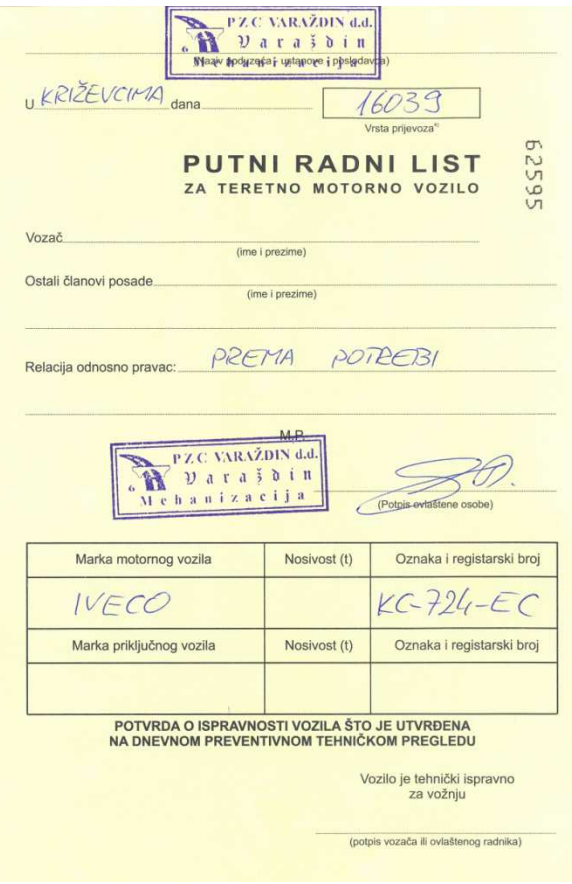 PZC VARAŽDIN d.d.
Varaždin
Mehanizacija
6
(Naziv poduzeća, ustanove i poslodavca)
U KRIŽEVCIMA dana 16039
Vrsta prijevoza*)
62595
PUTNI RADNI LIST
ZA TERETNO MOTORNO VOZILO
Vozač
(ime i prezime)
Ostali članovi posade
(ime i prezime)
Relacija odnosno pravac: PREMA POTREBI
M.P.
PZC VARAŽDIN d.d.
Varaždin
6
Mehanizacija
(Potpis ovlaštene osobe)
Marka motornog vozila Nosivost (t) Oznaka i registarski broj
IVECO KC-724-EC
Marka priključnog vozila Nosivost (t) Oznaka i registarski broj
POTVRDA O ISPRAVNOSTI VOZILA ŠTO JE UTVRĐENA
NA DNEVNOM PREVENTIVNOM TEHNIČKOM PREGLEDU
Vozilo je tehnički ispravno
za vožnju
(potpis vozača ili ovlaštenog radnika)